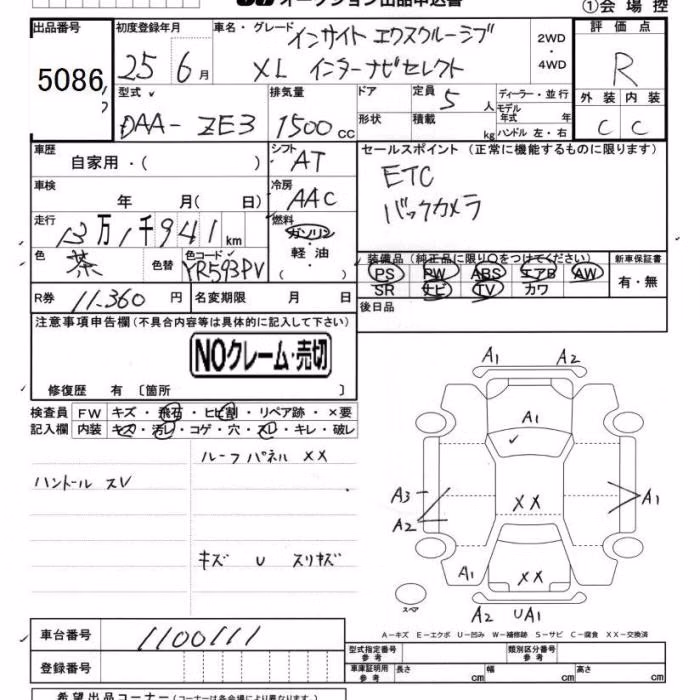 オークション出品申込書
①会場控
出品番号
5086
初度登録年月
25 6月
車名・グレード
インサイト エクスクルーシブ
XL インターナビセレクト
2WD
・
4WD
評価点
R
外装 内装
C C
型式
DAA- ZE3
排気量
1500cc
ドア
形状
定員 5 人
積載 kg
ディーラー・並行
モデル年式 年
ハンドル 左・右
車歴
自家用・( )
シフト
AT
車検
年 月( 日)
冷房
AAC
走行
13万1千941km
燃料
ガソリン
・
軽油
・
( )
色
茶
色替
色コード
YR593PV
R券 11.360 円
名変期限 月 日
セールスポイント (正常に機能するものに限ります)
ETC
バックカメラ
装備品(純正品に限り○をつけてください)
PS PW ABS エアB AW
SR ナビ TV カワ
新車保証書
有・無
後日品
注意事項申告欄(不具合内容等は具体的に記入して下さい)
NOクレーム・売切
修復歴 有 〔箇所 〕
検査員記入欄
FW キズ・飛石・ヒビ割・リペア跡・×要
内装 キズ・汚レ・コゲ・穴・スレ・キレ・破レ
ルーフパネル XX
ハンドル スレ
キズ U スリキズ
A1 A2
A1
A3
A2
XX
A1
A1
XX
A2 UA1
スペア
A-キズ E-エクボ U-凹み W-補修跡 S-サビ C-腐食 XX-交換済
車台番号
1100111
登録番号
型式指定番号
参考
類別区分番号
参考
車庫証明用
参考
長さ cm
幅 cm
高さ cm
希望出品コーナー(コーナーは各会場により異なります。)